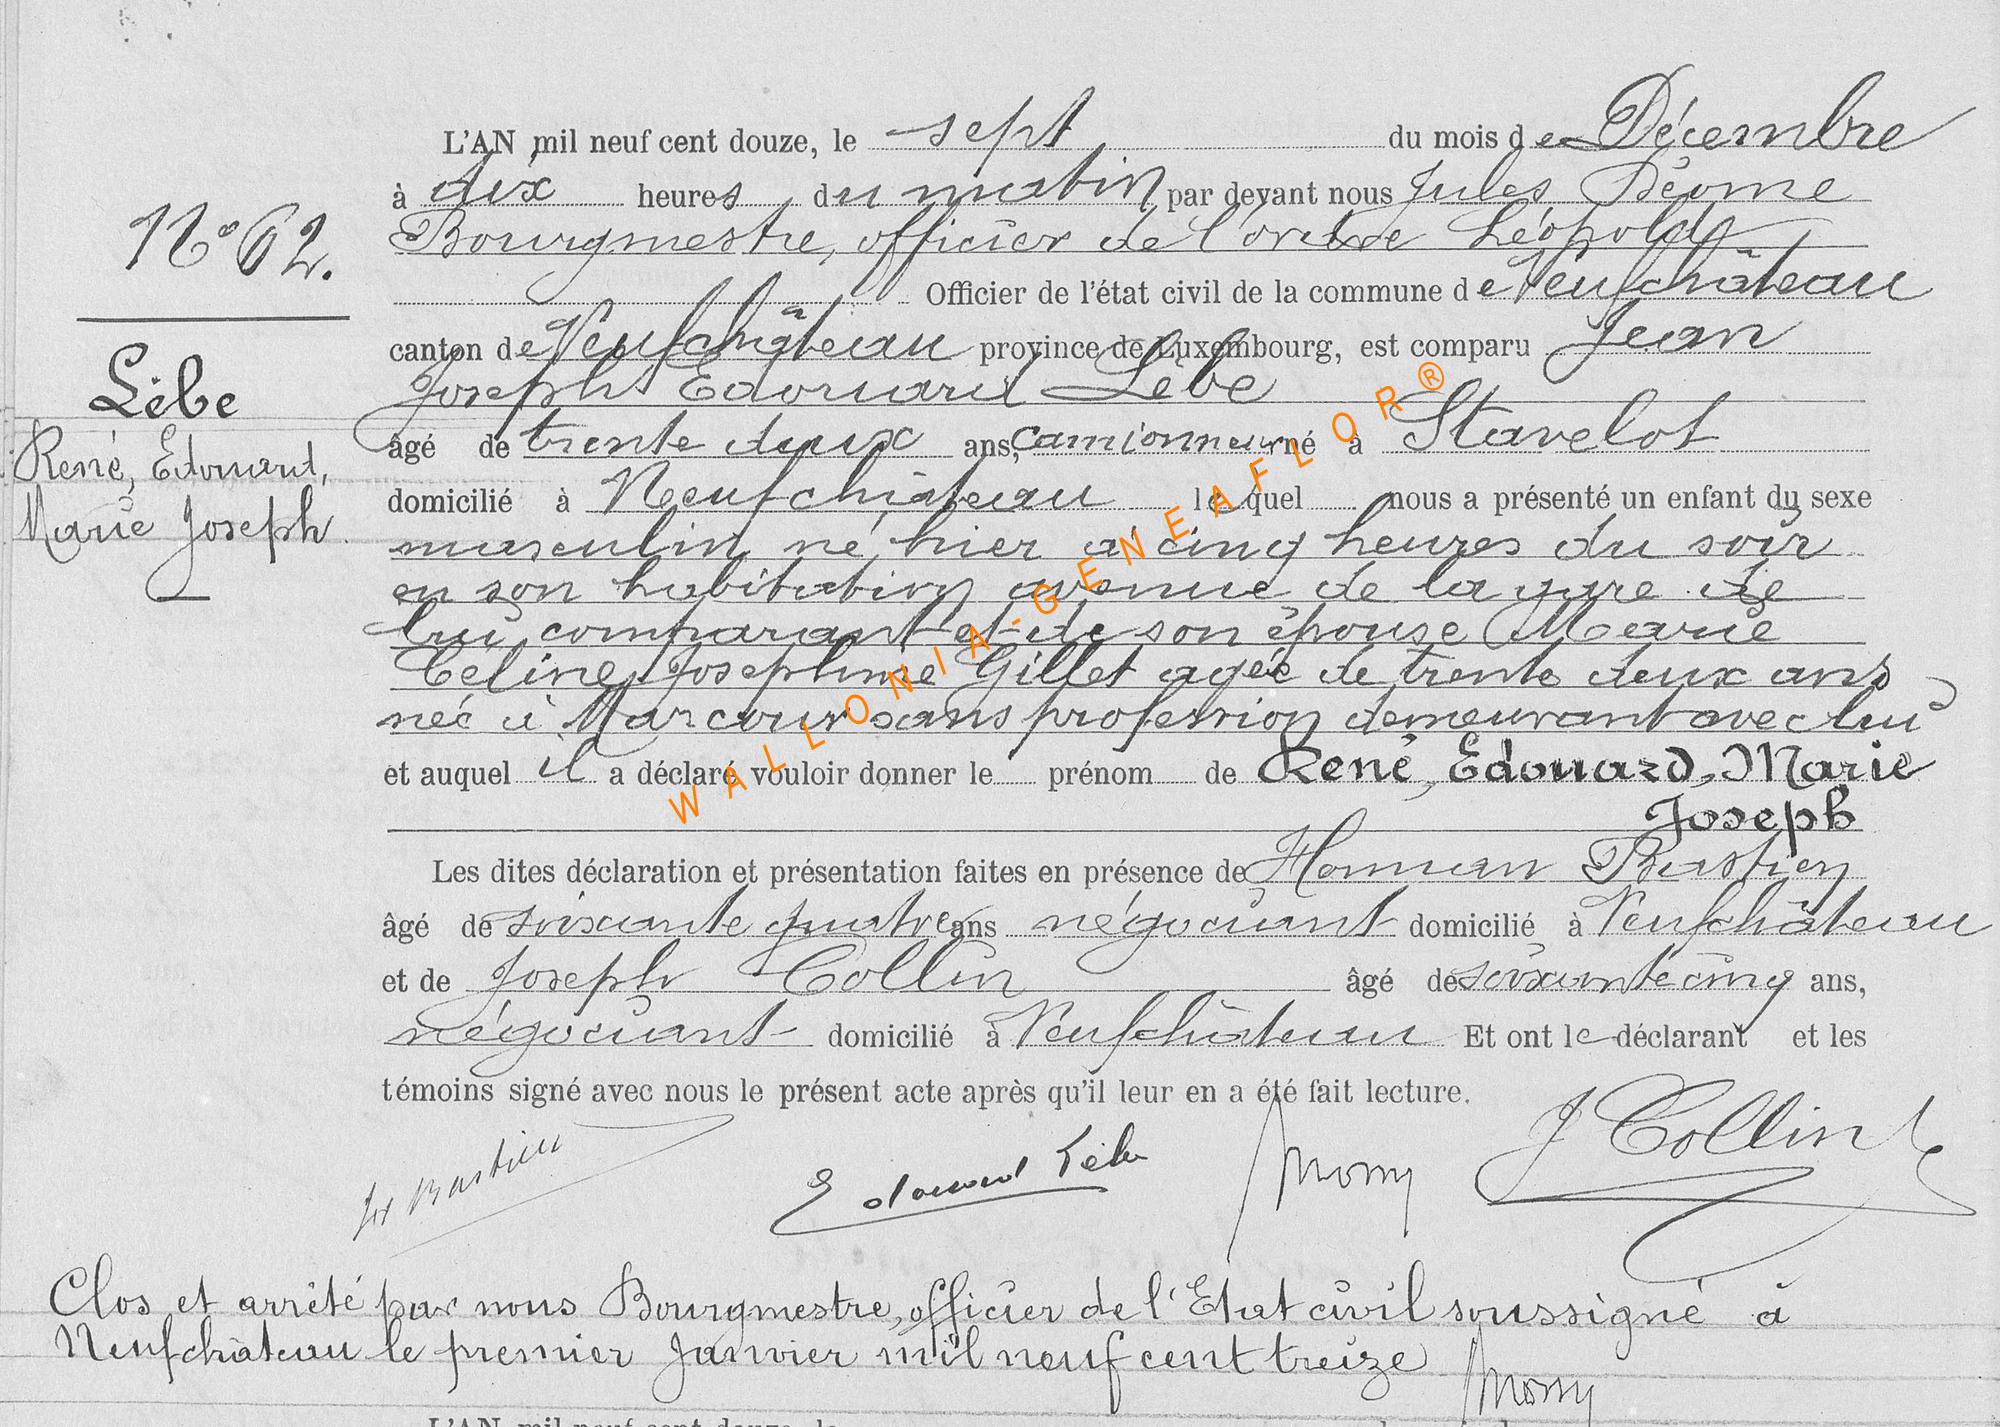 L'AN mil neuf cent douze, le sept du mois de Décembre
à dix heures du matin par devant nous Jules
Bourgmestre, officier de l'ordre Léopold
Officier de l'état civil de la commune de Neufchâteau
canton de Neufchâteau province de Luxembourg, est comparu Jean
Joseph Edouard Lèbe
âgé de trente deux ans, camionneur né à Stavelot
domicilié à Neufchâteau lequel nous a présenté un enfant du sexe
masculin né hier à cinq heures du soir
en son habitation avenue de la gare de
lui comparant et de son épouse Marie
Céline Josephine Gillet agée de trente deux ans
née à Marcour sans profession demeurant avec lui
et auquel il a déclaré vouloir donner le prénom de René, Edouard, Marie
Joseph
Les dites déclaration et présentation faites en présence de Bastien
âgé de soixante quatre ans négociant domicilié à Neufchâteau
et de Joseph Collin âgé de soixante cinq ans,
négociant domicilié à Neufchâteau Et ont le déclarant et les
témoins signé avec nous le présent acte après qu'il leur en a été fait lecture.
N° 62.
Lèbe
René, Edouard,
Marie Joseph
Bastien Edouard Lèbe J Collin
Clos et arrêté par nous Bourgmestre, officier de l'Etat civil soussigné à
Neufchâteau le premier Janvier mil neuf cent treize
WALLONIA-GENEAFLOR®
L'AN mil neuf cent douze, le